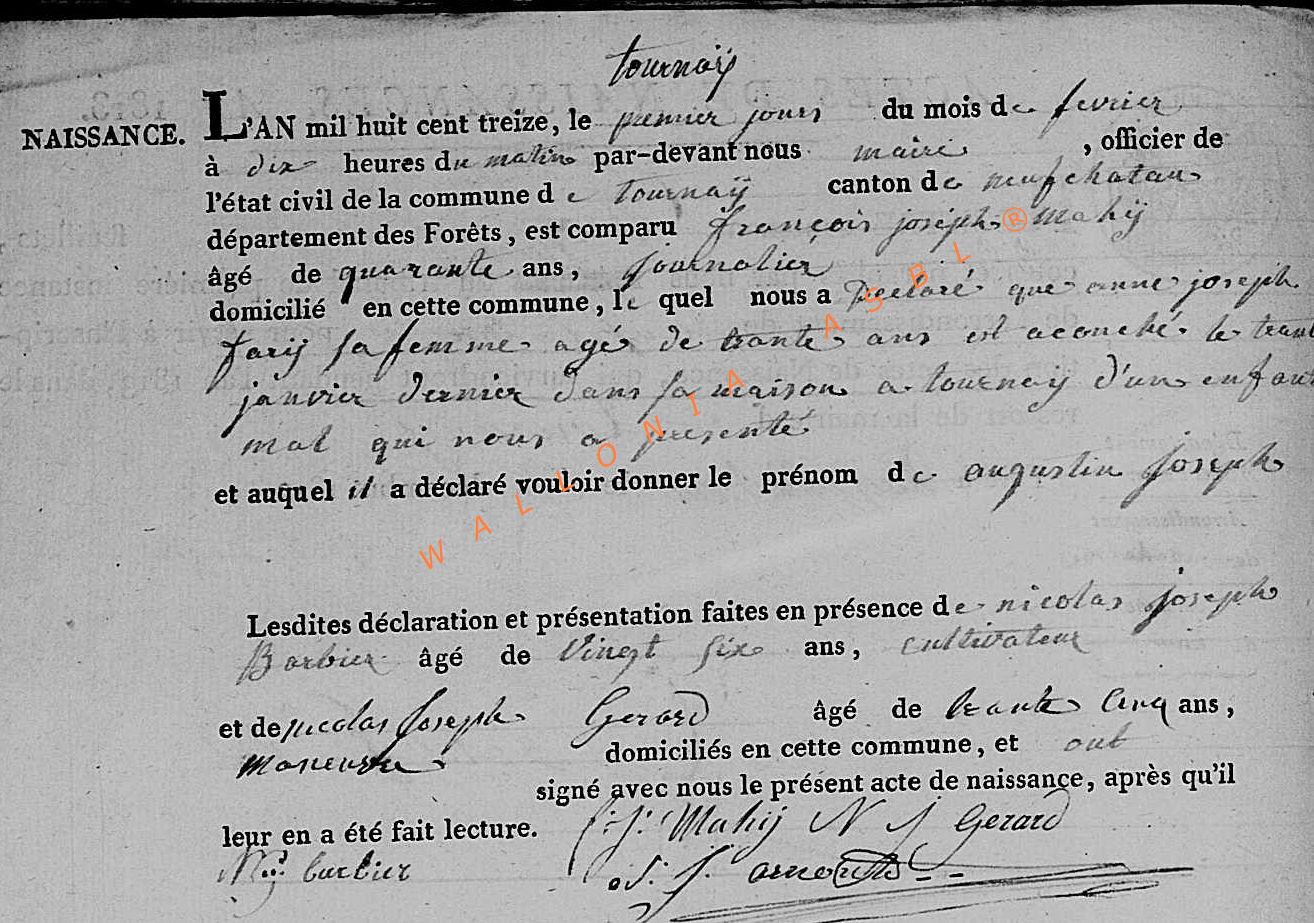 tournaÿ
NAISSANCE. L'AN mil huit cent treize, le premier jours du mois de fevrier
à dix heures du matin par-devant nous maire , officier de
l'état civil de la commune de tournaÿ canton de neufchatau
département des Forêts, est comparu françois joseph Mahÿ
âgé de quarante ans, journalier
domicilié en cette commune, le quel nous a Declaré que anne joseph
sa femme agé de trante ans est acouché le trant
janvier dernier dans sa maison a tournaÿ d'un enfant
mal qui nous a presenté
et auquel il a déclaré vouloir donner le prénom de augustin Joseph
Lesdites déclaration et présentation faites en présence de nicolas joseph
Barbier âgé de vingt six ans, cultivateur
et de nicolas Joseph Gerard âgé de trante cinq ans,
domiciliés en cette commune, et ont
signé avec nous le présent acte de naissance, après qu'il
leur en a été fait lecture. f: j: Mahÿ N J Gerard
barbier
WALLONIA ASBL®